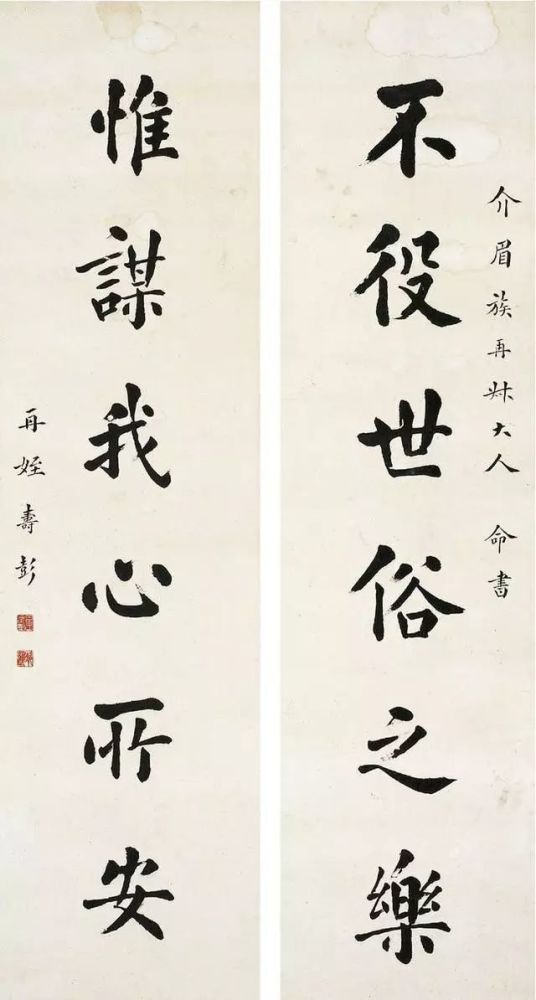 介眉族再叔大人 命書
不役世俗之樂
惟謀我心所安
再姪壽彭